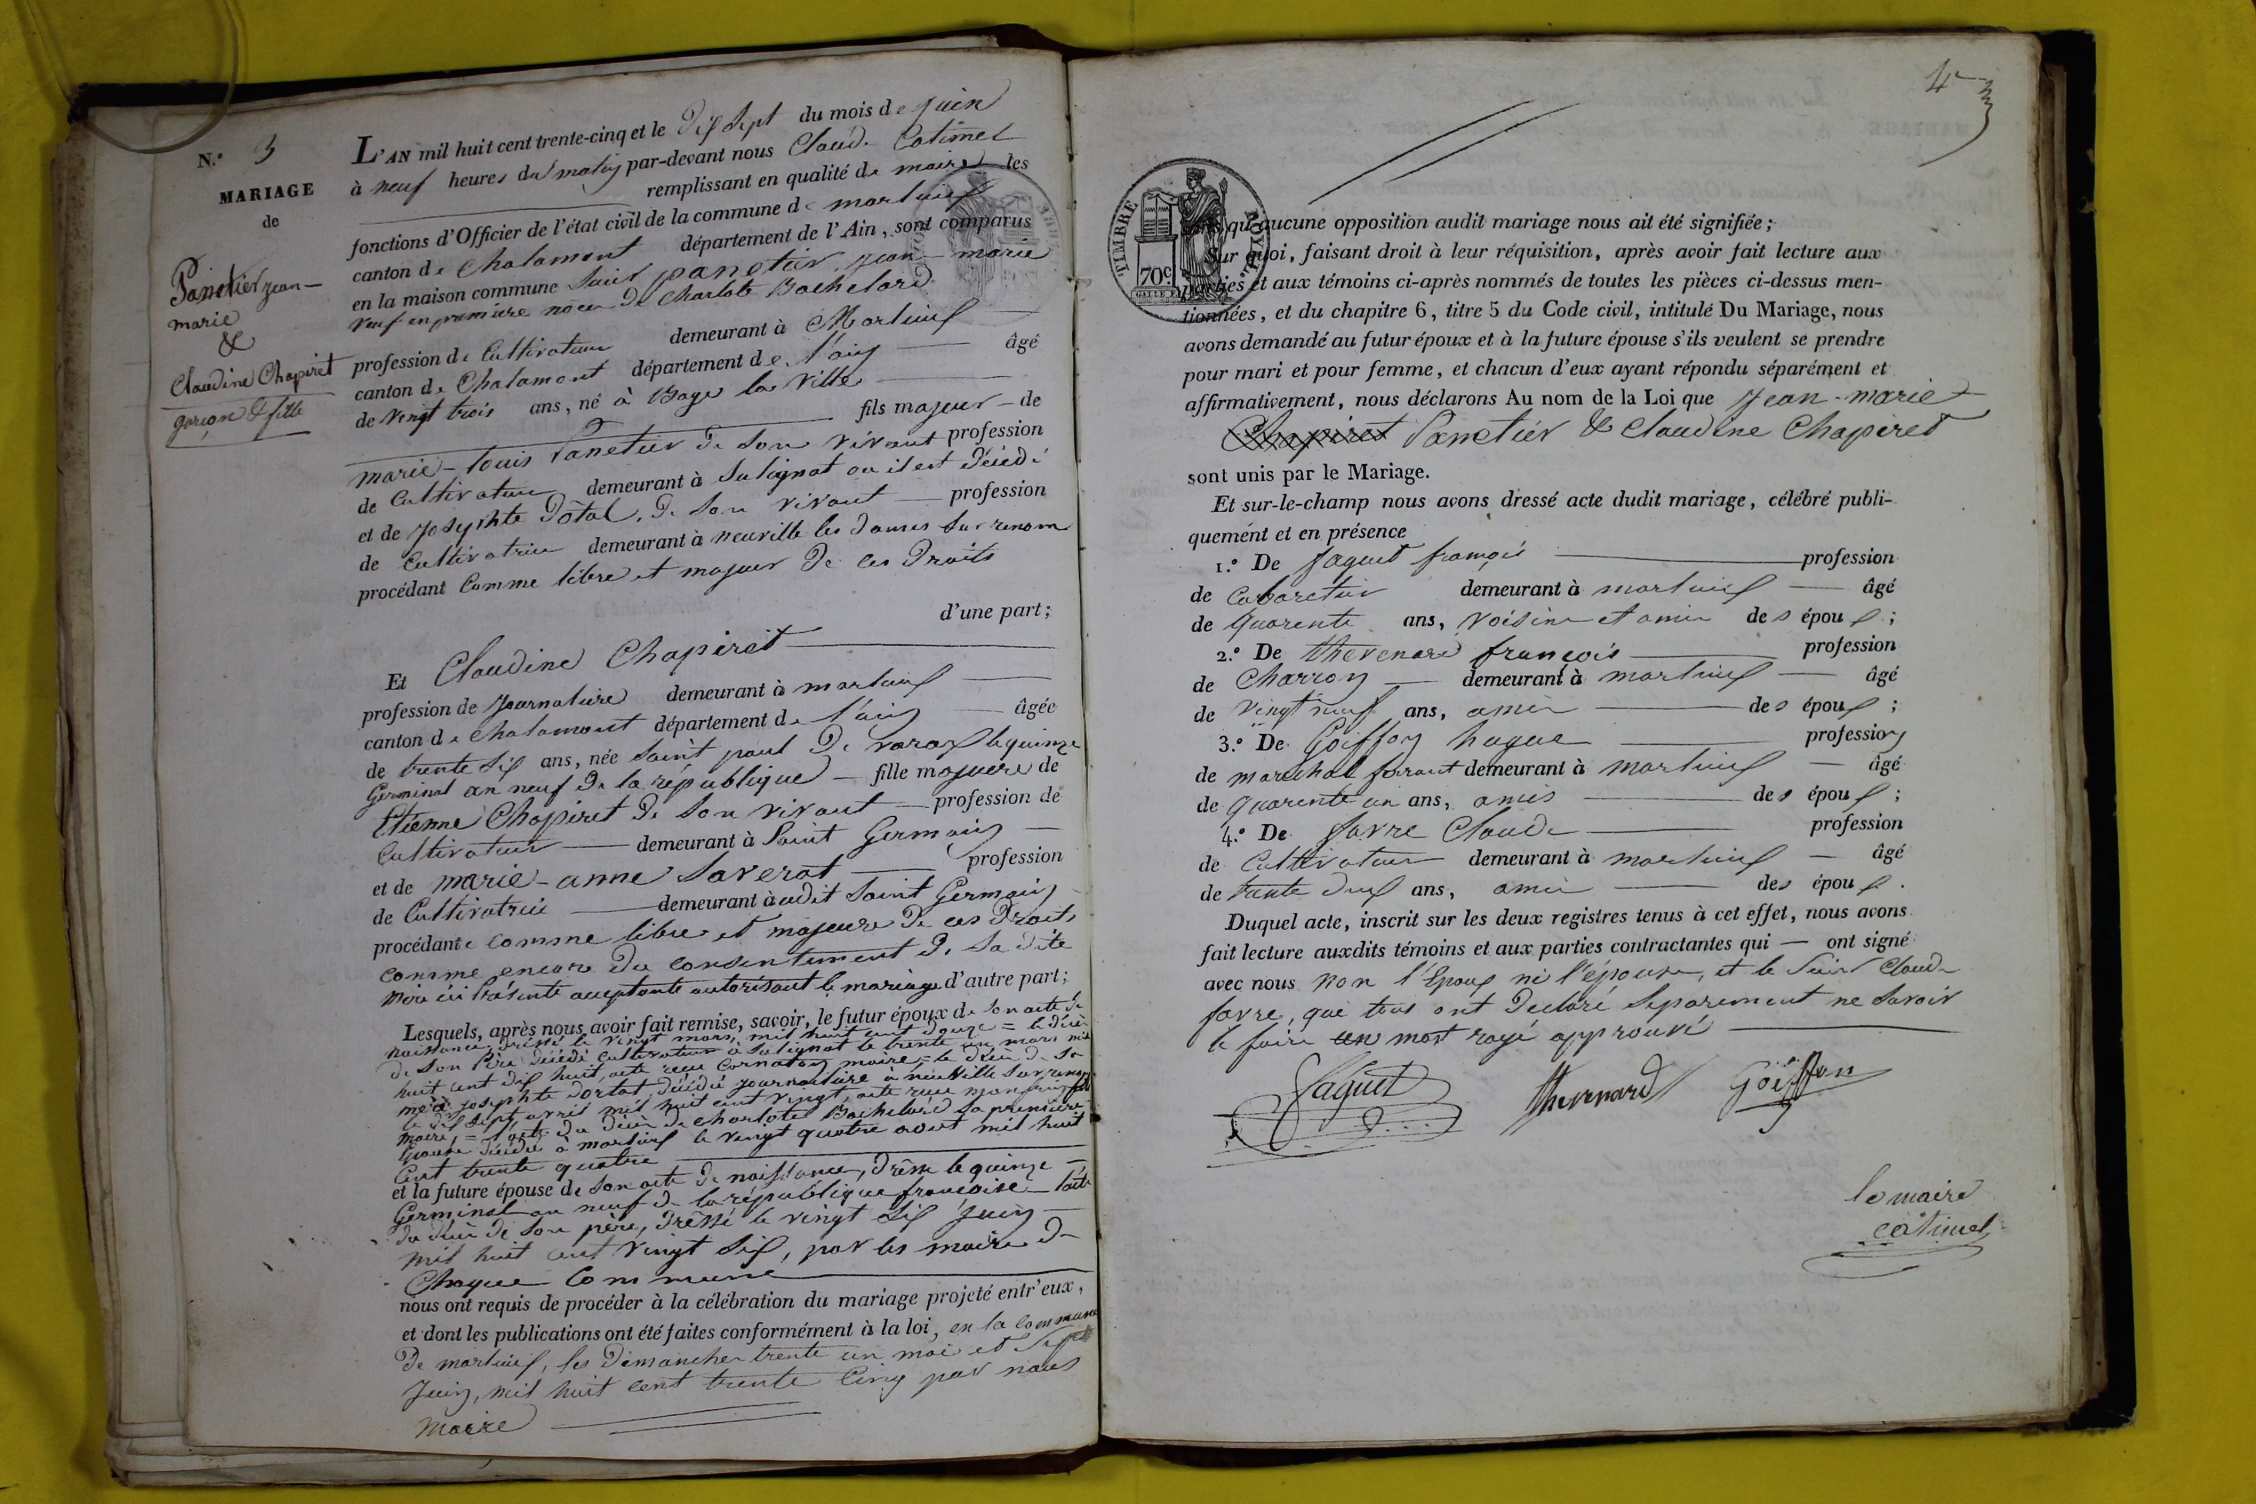 N.° 3
MARIAGE
de
Panetier jean-
marie
&
Claudine Chapiret
garçon & fille
L'AN mil huit cent trente-cinq et le dix sept du mois de juin
à neuf heures du matin par-devant nous Claude Catimel
remplissant en qualité de maire les
fonctions d'Officier de l'état civil de la commune de marlieux
canton de Chalamont département de l'Ain, sont comparus
en la maison commune Sieur panetier jean-marie
veuf en première noces de Charlote Bachelard
profession de Cultivateur demeurant à Marlieux
canton de Chalamont département de l'ain âgé
de vingt trois ans, né à Bage la Ville
fils majeur de
marie-louis Panetier de son vivant profession
de Cultivateur demeurant à Sulignat ou il est décédé
et de Josephte Dotal, de son vivant profession
de Cultivatrice demeurant à neuville les dames sur renom
procédant Comme libre et majeur de ces droits
d'une part;
Et Claudine Chapiret
profession de Journalière demeurant à marlieux
canton de Chalamont département de l'ain âgée
de trente six ans, née Saint paul de varax le quinze
Germinal an neuf de la république fille majeure de
Etienne Chapiret de son vivant profession de
Cultivateur demeurant à Saint Germain
et de marie-anne Saverat profession
de Cultivatrice demeurant à audit Saint Germain
procédante comme libre et majeure de ces droits
comme encore du consentement de sa dite
mère ici présente acceptante autorisant le mariage d'autre part;
Lesquels, après nous avoir fait remise, savoir, le futur époux de son acte de
naissance, dressé le vingt mars, mil huit cent douze = le décès
de son Père décédé cultivateur à Sulignat le trente un mars mil
huit cent dix huit, acte reçu Cornaton, maire = le décès de sa
mère josephte dortal, décédée journalière à neuville sur renom
le dix sept avril mil huit cent vingt, acte reçu
maire, = l'acte du décès de charlote Bachelard sa première
épouse décédée à marlieux le vingt quatre aout mil huit
Cent trente quatre
et la future épouse de son acte de naissance, drêssé le quinze
Germinal an neuf de la république françoise l'acte
du décès de son père, drêssé le vingt six juin
mil huit cent vingt six, par les maire de
Chaque Commune
nous ont requis de procéder à la célébration du mariage projeté entr'eux,
et dont les publications ont été faites conformément à la loi, en la commune
de marlieux, les dimanches trente un mai et Sept
Juin, mil huit cent trente Cinq par nous
maire
4
TIMBRE ROYAL
70c
qu'aucune opposition audit mariage nous ait été signifiée;
Sur quoi, faisant droit à leur réquisition, après avoir fait lecture aux
parties et aux témoins ci-après nommés de toutes les pièces ci-dessus men-
tionnées, et du chapitre 6, titre 5 du Code civil, intitulé Du Mariage, nous
avons demandé au futur époux et à la future épouse s'ils veulent se prendre
pour mari et pour femme, et chacun d'eux ayant répondu séparément et
affirmativement, nous déclarons Au nom de la Loi que Jean-marie
Chapiret Panetier & Claudine Chapiret
sont unis par le Mariage.
Et sur-le-champ nous avons dressé acte dudit mariage, célébré publi-
quement et en présence
1.° De Jaquet françois profession
de Cabaretier demeurant à marlieux âgé
de quarente ans, voisin et amis des époux;
2.° De thevenard françois profession
de Charron demeurant à marlieux âgé
de vingt neuf ans, amis des époux;
3.° De Goiffon hugue profession
de marechal ferrant demeurant à marlieux âgé
de quarente un ans, amis des époux;
4.° De favre Claude profession
de Cultivateur demeurant à marlieux âgé
de trente deux ans, amis des époux.
Duquel acte, inscrit sur les deux registres tenus à cet effet, nous avons
fait lecture auxdits témoins et aux parties contractantes qui ont signé
avec nous non l'époux ni l'épouse, et le sieur Claude
favre, que tous ont déclaré séparement ne savoir
le faire un mot rayé approuvé
Jaquet thevenard Goiffon
le maire
catimel